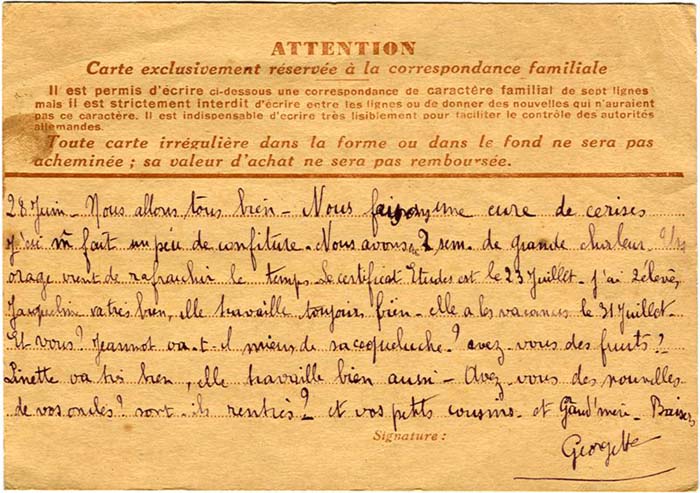 ATTENTION
Carte exclusivement réservée à la correspondance familiale
Il est permis d'écrire ci-dessous une correspondance de caractère familial de sept lignes
mais il est strictement interdit d'écrire entre les lignes ou de donner des nouvelles qui n'auraient
pas ce caractère. Il est indispensable d'écrire très lisiblement pour faciliter le contrôle des autorités
allemandes.
Toute carte irrégulière dans la forme ou dans le fond ne sera pas
acheminée ; sa valeur d'achat ne sera pas remboursée.
28 Juin - Nous allons tous bien - Nous faisons une cure de cerises
J'ai fait un peu de confiture. Nous avons 2 sem. de grande chaleur. Un
orage vient de rafraichir le temps. Le certificat Etudes est le 23 Juillet. J'ai 2 élèves,
Jacqueline va très bien, elle travaille toujours bien - elle a les vacances le 31 Juillet.
Et vous? Jeannot va-t-il mieux de sa coqueluche? avez vous des fruits?
Linette va très bien, elle travaille bien aussi - Avez vous des nouvelles
de vos oncles? sont-ils rentrés? et vos petits cousins - et Grand'mère - Baisers
Signature :
Georgette